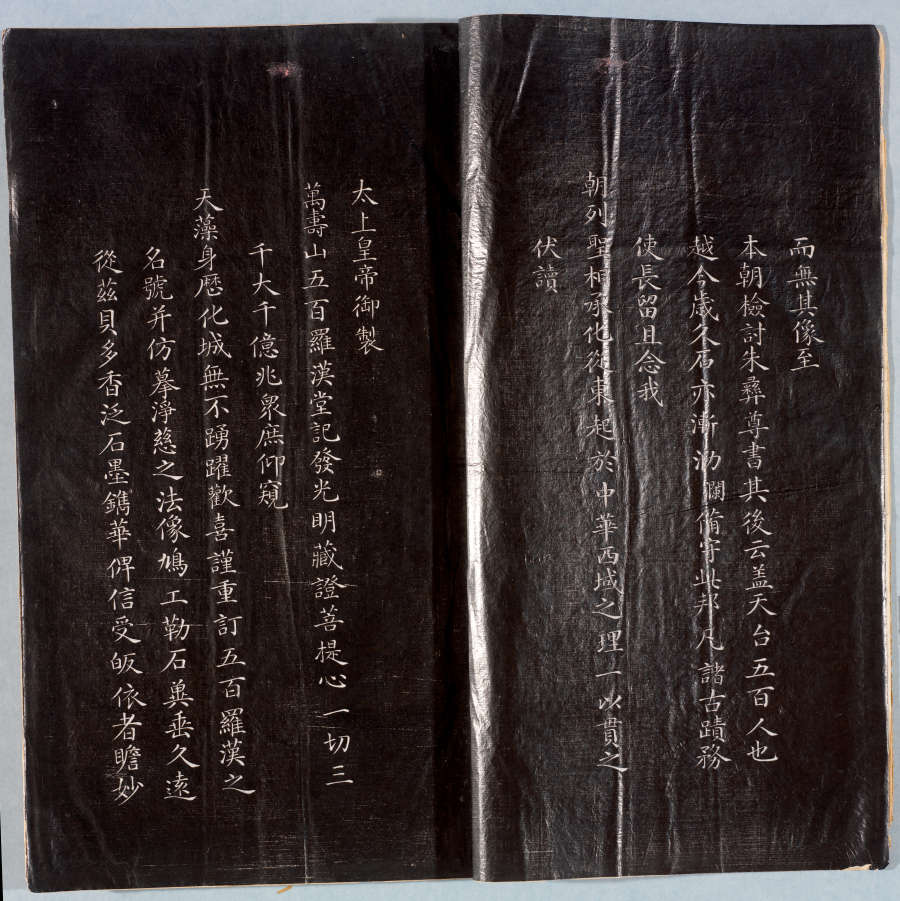 而無其像至
本朝檢討朱彝尊書其後云盖天台五百人也
越今歲久石亦漸泐瀾備守此邦凡諸古蹟務
使長留且念我
朝列聖相承化從東起於中華西域之理一以貫之
伏讀
太上皇帝御製
萬壽山五百羅漢堂記發光明藏證菩提心一切三
千大千億兆衆庶仰窺
天藻身歷化城無不踴躍歡喜謹重訂五百羅漢之
名號并仿摹淨慈之法像鳩工勒石冀垂久遠
從兹貝多香泛石墨鐫華俾信受皈依者瞻妙